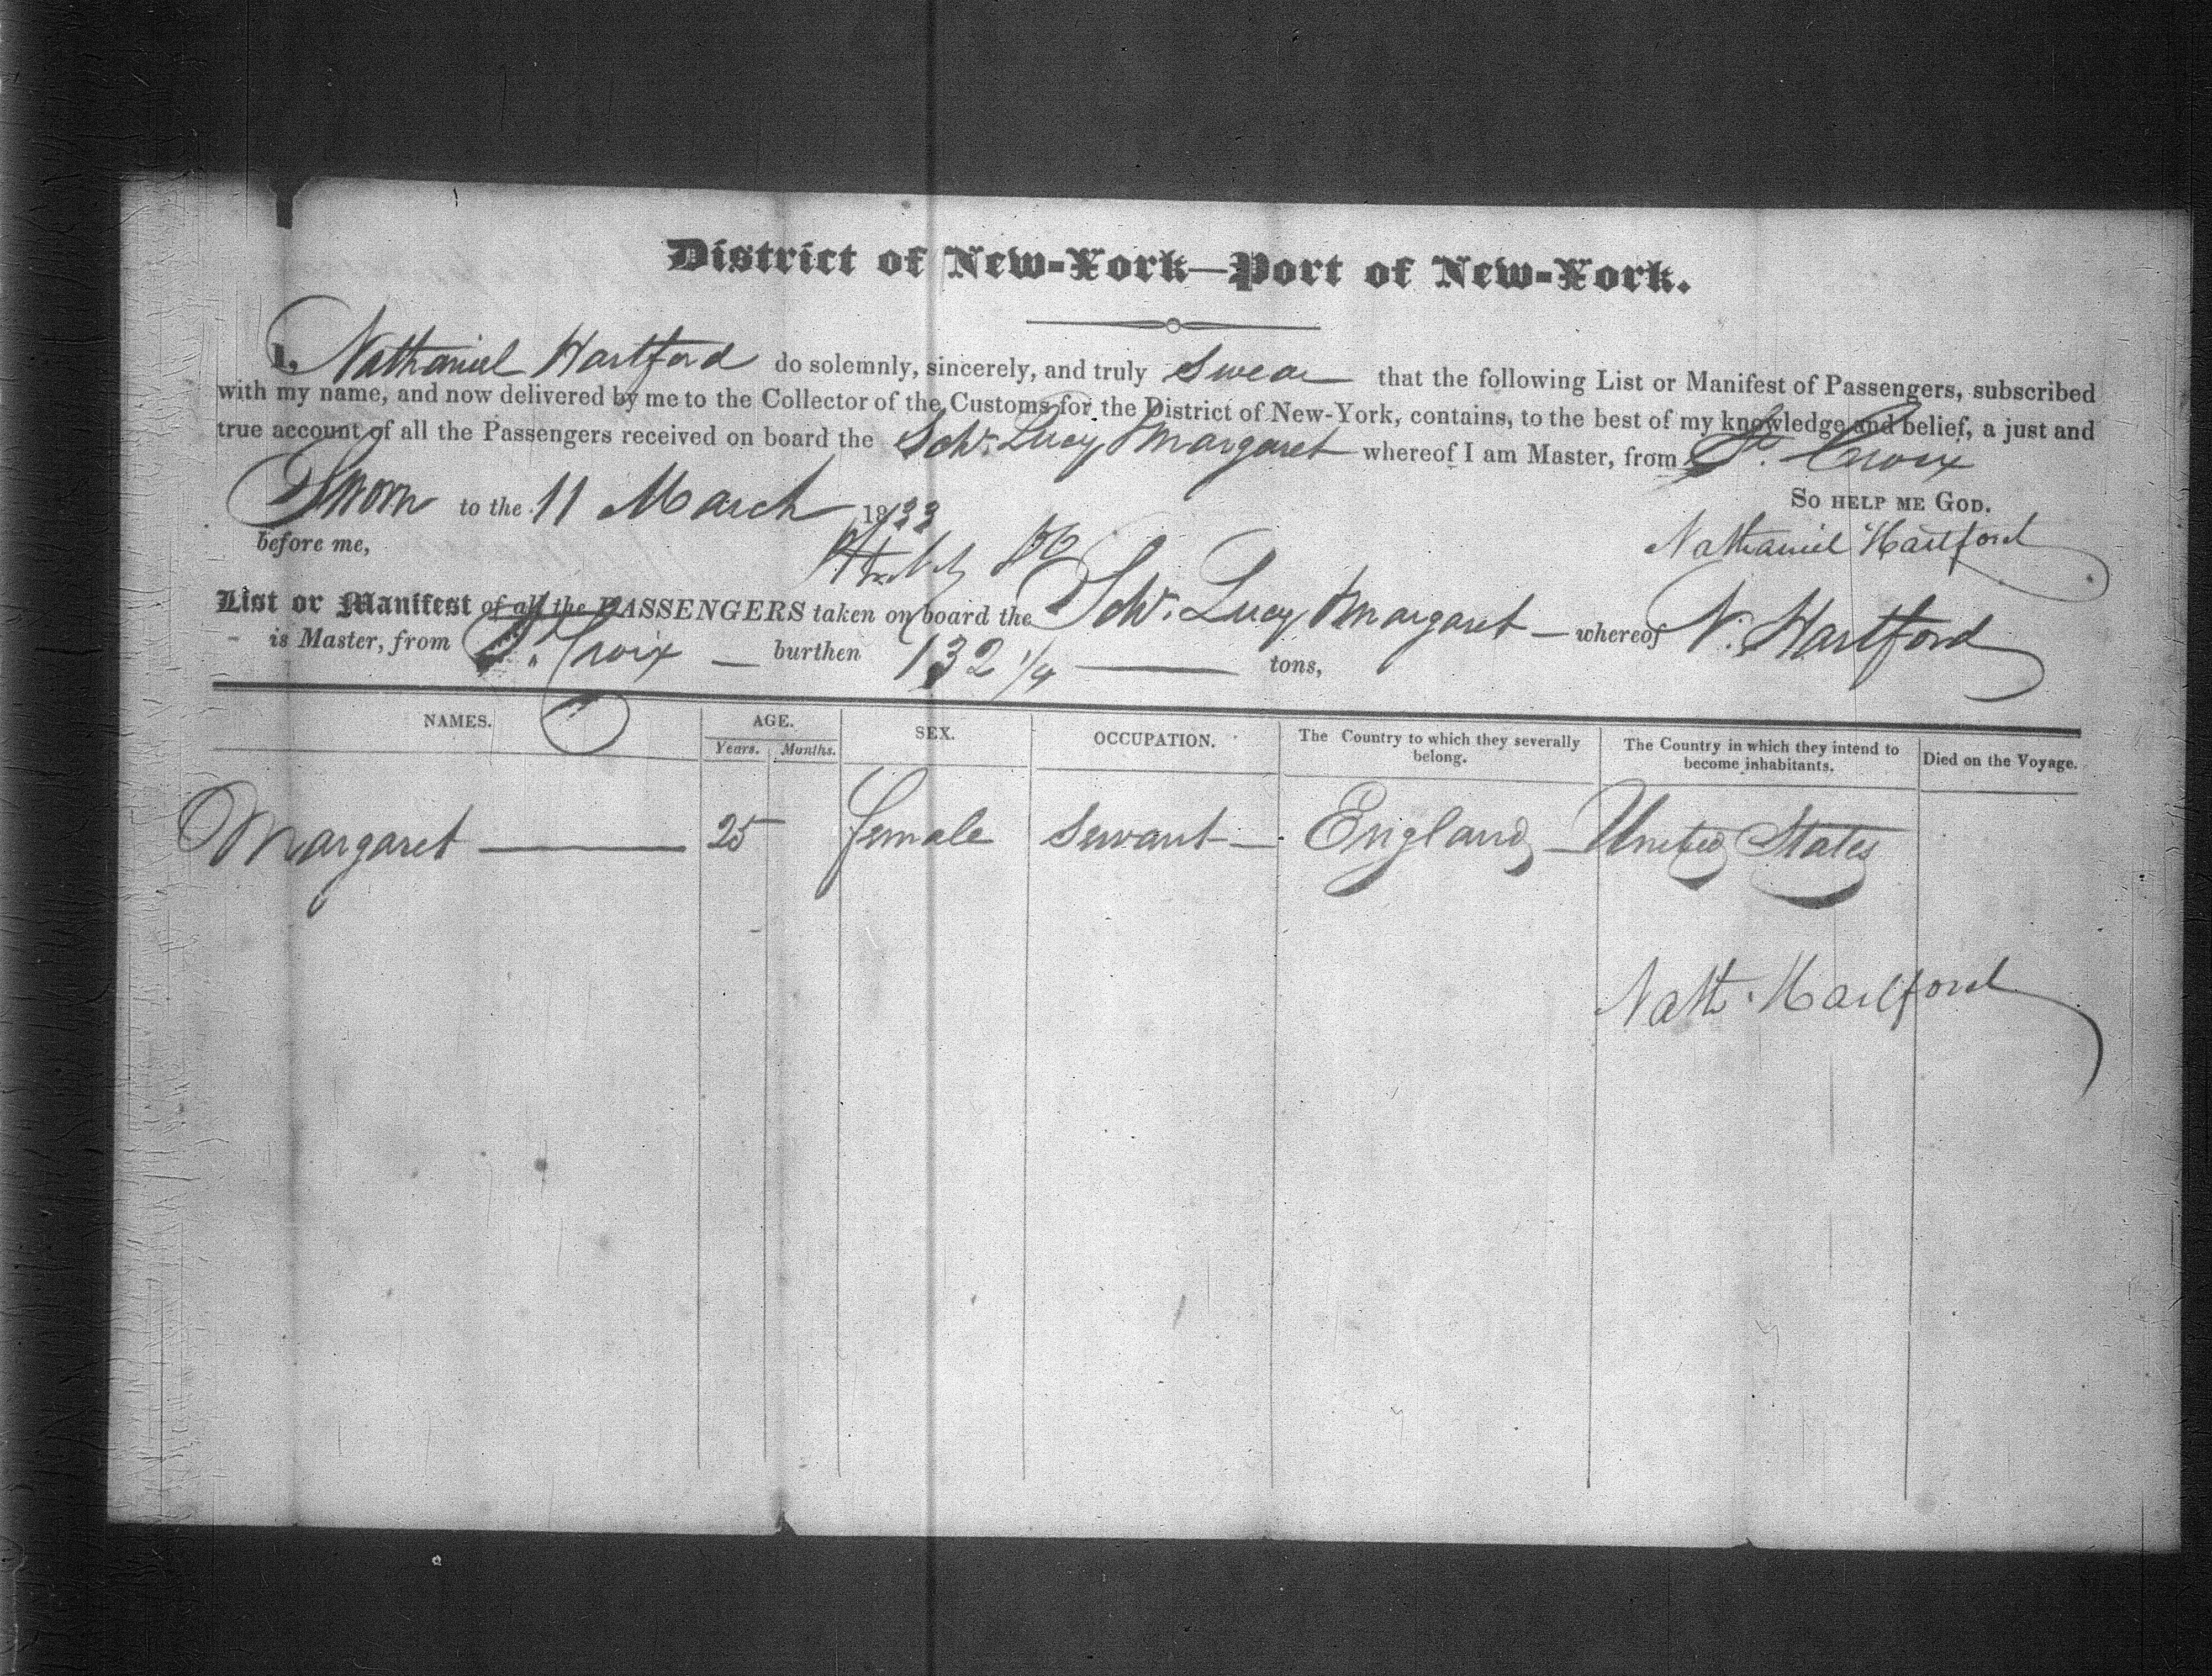 District of New-York—Port of New-York.
I, Nathaniel Hartford do solemnly, sincerely, and truly Swear that the following List or Manifest of Passengers, subscribed
with my name, and now delivered by me to the Collector of the Customs for the District of New-York, contains, to the best of my knowledge and belief, a just and
true account of all the Passengers received on board the Schr. Lucy Margaret whereof I am Master, from St. Croix
Sworn to the 11 March 1833
So help me God.
before me,
Nathaniel Hartford
List or Manifest of all the PASSENGERS taken on board the Schr. Lucy Margaret — whereof N. Hartford
is Master, from St. Croix — burthen 132 1/4 — tons,
NAMES. AGE. SEX. OCCUPATION. The Country to which they severally belong. The Country in which they intend to become inhabitants. Died on the Voyage.
Years. Months.
Margaret — 25 female Servant — England — United States
Nath. Hartford